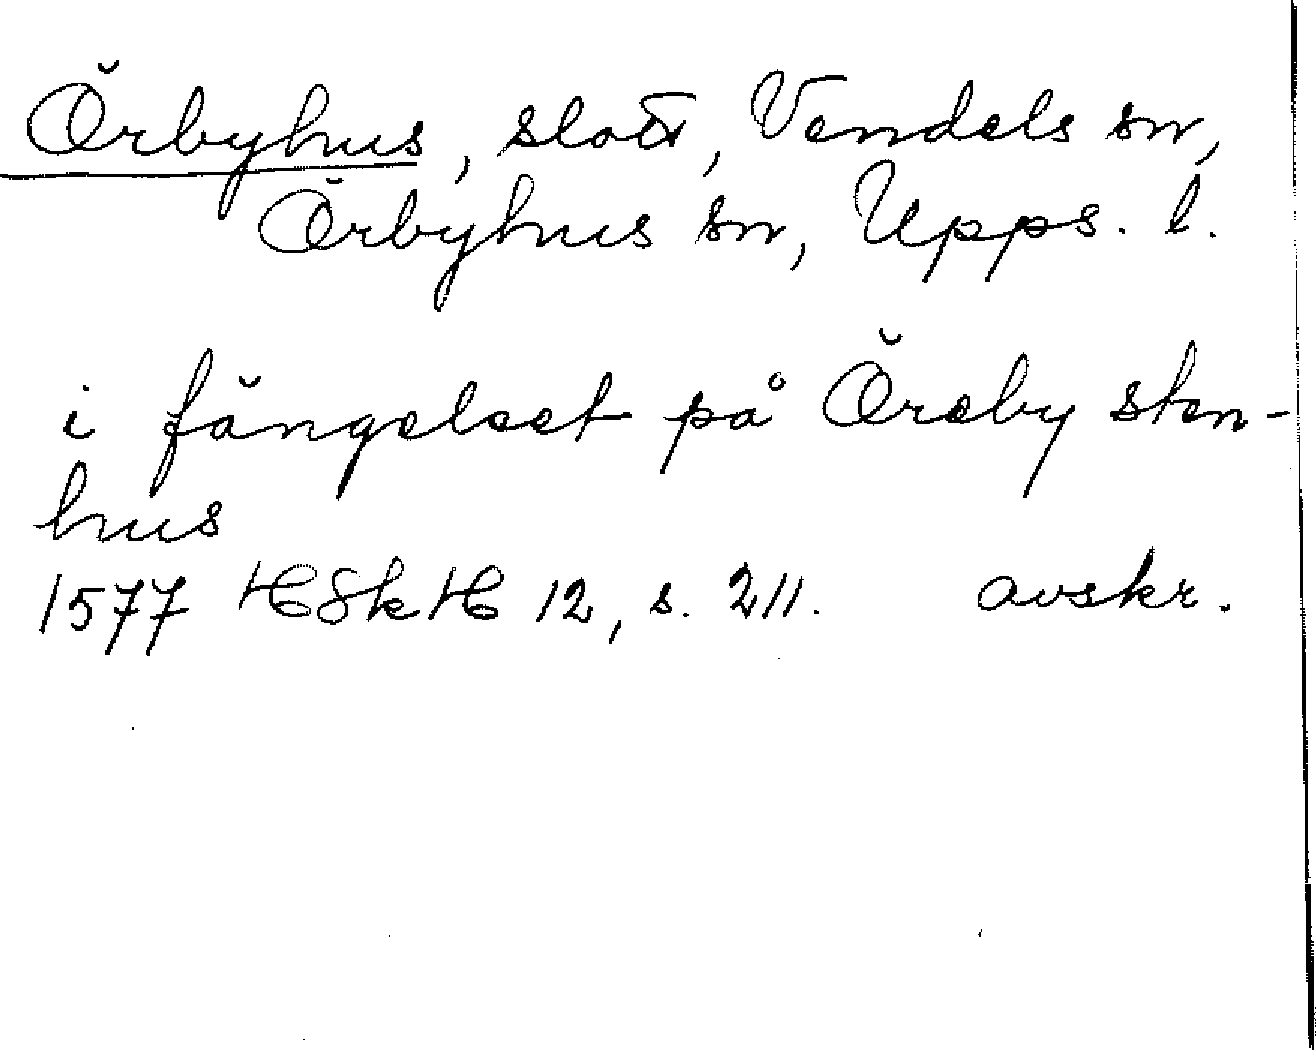 Örbyhus, slott, Vendels sn,
Örbyhus sn, Upps. l.
i fängelset på Öreby sten-
hus
1577 HSkH 12, s. 211. avskr.